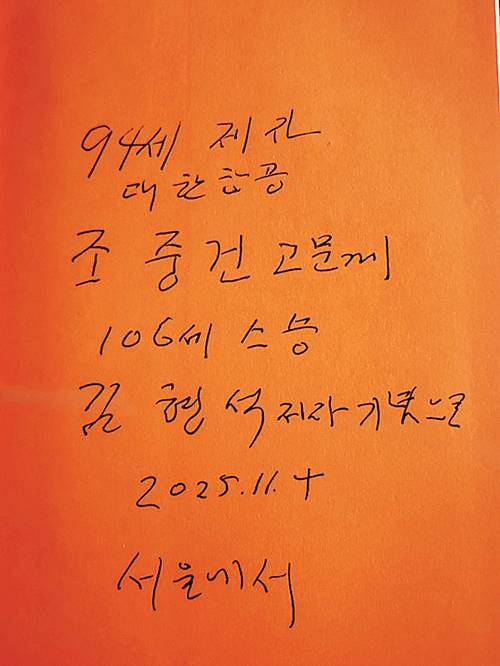 94세 제자
대한항공
조 중 건 고문께
106세 스승
김 형 석 저자 기쁨으로
2025.11.4
서울에서